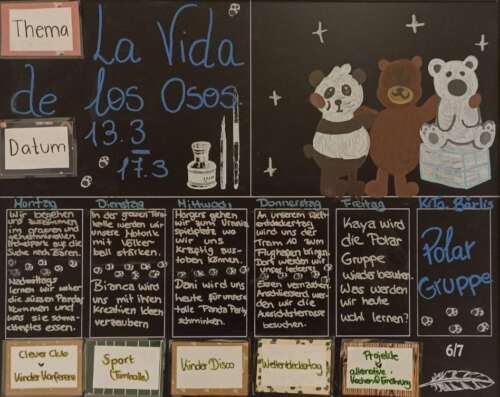 Thema
La Vida
de los Osos
Datum
13.3
–
17.3
Montag
Wir begeben
uns zusammen
im grossen und
Suche nach Bären.
Nachmittags
lernen wir woher
die süssen Pandas
kommen und
was sie schmatzen
essen.
Dienstag
In der grossen Turn-
halle werden wir
unsere Motorik
mit Völker-
ball stärken.
Bianca wird
uns mit ihren
Kreativen Ideen
verzaubern
Mittwoch
Morgens gehen
wir zum Urania
spielplatz wo
wir uns
kräftig aus-
toben können.
Dani wird uns
heute für unsere
tolle "Panda Party"
schminken.
Donnerstag
An unserem Welt-
entdeckertag
wird uns der
Tram 10 zum
Flughafen bringen.
Dort werden wir
unser leckeres
Essen verzehren.
Anschliessend wer-
den wir die
Aussichtsterrasse
besuchen.
Freitag
Kaya wird
die Polar
Gruppe
wieder besuchen.
Was werden
wir heute
wohl lernen?
KiTa. Bärlis
Polar
Gruppe
Clever Club
Kinder Konferenz
Sport
(Turnhalle)
Kinder Disco
Weltentdeckertag
Projekte
alterative
Kochen & Ernährung
6/7